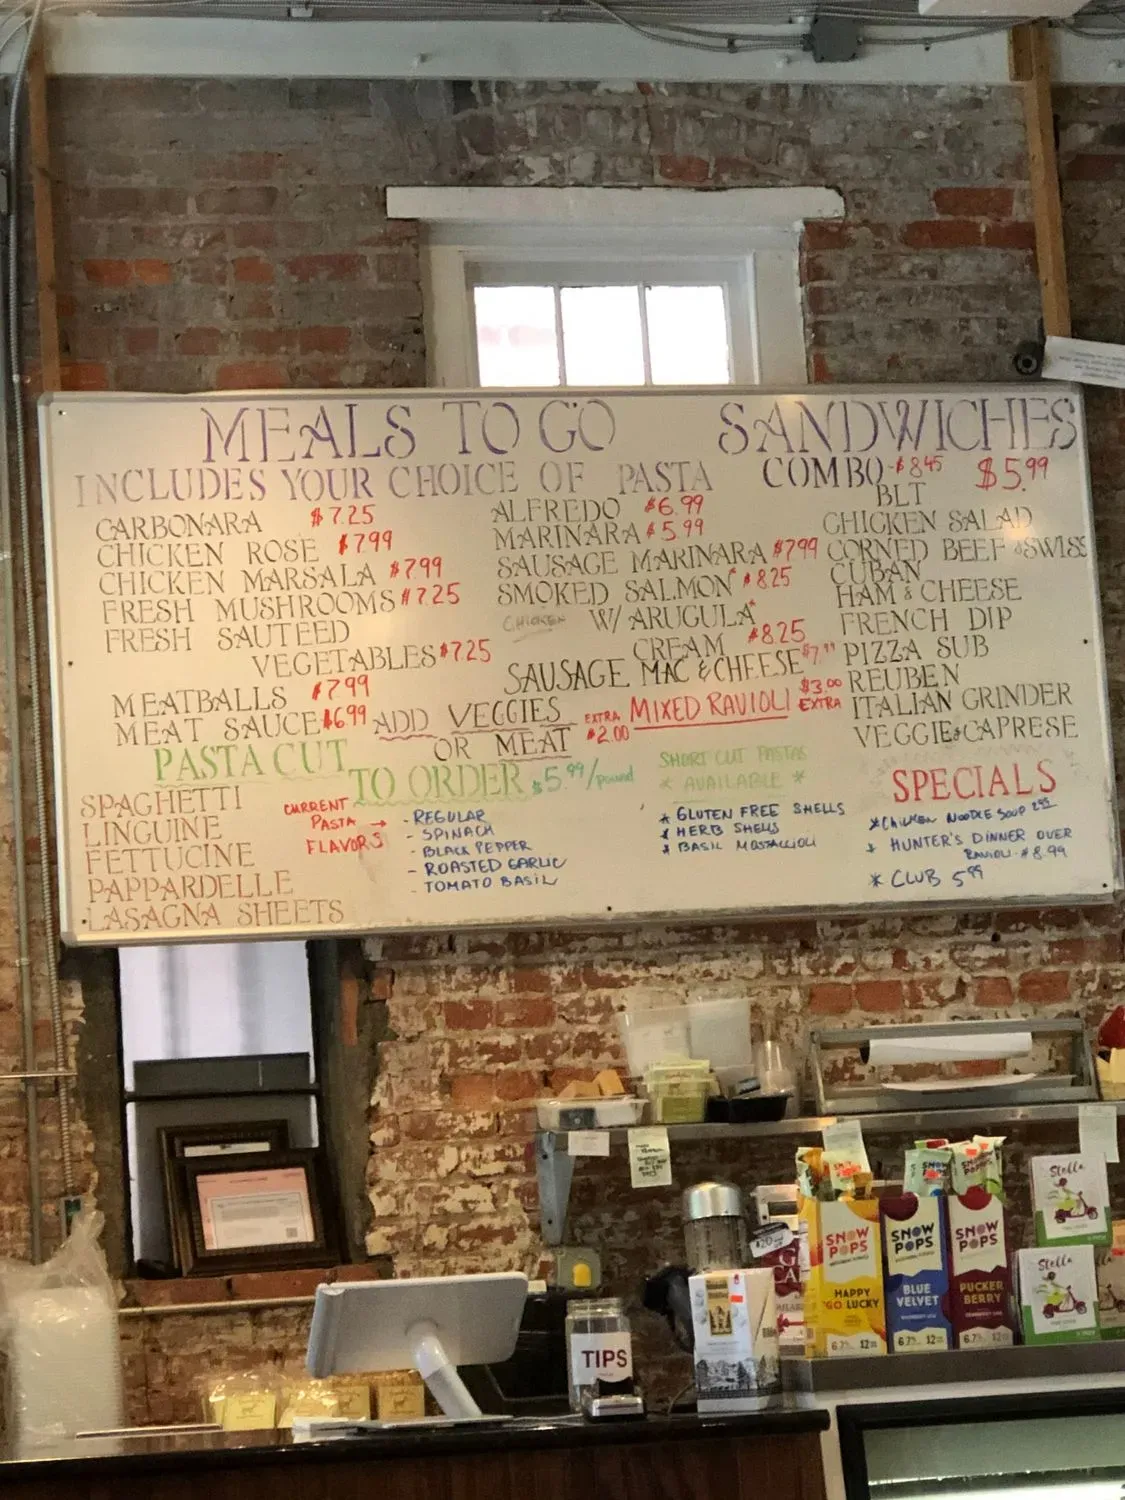 MEALS TO GO
INCLUDES YOUR CHOICE OF PASTA
CARBONARA $7.25
CHICKEN ROSE $7.99
CHICKEN MARSALA $7.99
FRESH MUSHROOMS $7.25
FRESH SAUTEED
VEGETABLES $7.25
MEATBALLS $7.99
MEAT SAUCE $6.99
ALFREDO $6.99
MARINARA $5.99
SAUSAGE MARINARA $7.99
SMOKED SALMON $8.25
CHICKEN W/ ARUGULA
CREAM $8.25
SAUSAGE MAC & CHEESE
ADD VEGGIES
OR MEAT
EXTRA
$2.00
MIXED RAVIOLI $3.00
EXTRA
SANDWICHES
COMBO-$8.45 $5.99
BLT
CHICKEN SALAD
CORNED BEEF & SWISS
CUBAN
HAM & CHEESE
FRENCH DIP
PIZZA SUB
REUBEN
ITALIAN GRINDER
VEGGIE & CAPRESE
PASTA CUT
TO ORDER $5.99/pound
SPAGHETTI
LINGUINE
FETTUCINE
PAPPARDELLE
LASAGNA SHEETS
CURRENT
PASTA →
FLAVORS
- REGULAR
- SPINACH
- BLACK PEPPER
- ROASTED GARLIC
- TOMATO BASIL
SHORT CUT PASTAS
* AVAILABLE *
* GLUTEN FREE SHELLS
* HERB SHELLS
* BASIL MOSTACCIOLI
SPECIALS
* CHICKEN NOODLE SOUP
* HUNTER'S DINNER OVER
RAVIOLI - $8.99
* CLUB 5.99
TIPS
$20
SNOW
POPS
HAPPY
GO LUCKY
6.7% 12
SNOW
POPS
BLUE
VELVET
6.7% 12
SNOW
POPS
PUCKER
BERRY
6.7% 12
Stella
Stella